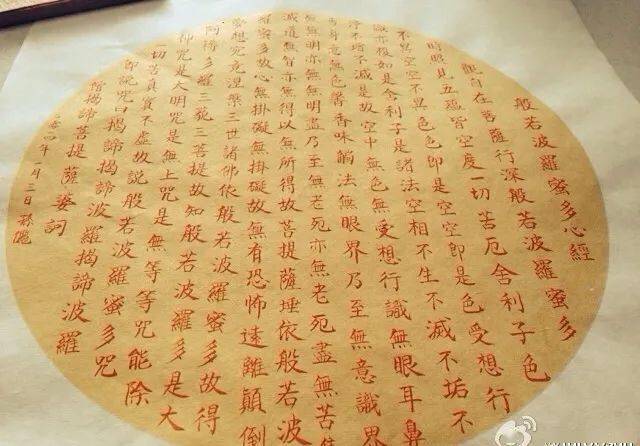 般若波羅蜜多心經
觀自在菩薩行深般若波羅蜜多
時照見五蘊皆空度一切苦厄舍利子色
不異空空不異色色即是空空即是色受想行
識亦復如是舍利子是諸法空相不生不滅不垢不
淨不增不減是故空中無色無受想行識無眼耳鼻
舌身意無色聲香味觸法無眼界乃至無意識界
無無明亦無無明盡乃至無老死亦無老死盡無苦集
滅道無智亦無得以無所得故菩提薩埵依般若波
羅蜜多故心無掛礙無掛礙故無有恐怖遠離顛倒
夢想究竟涅槃三世諸佛依般若波羅蜜多故得
阿耨多羅三藐三菩提故知般若波羅蜜多是大
神咒是大明咒是無上咒是無等等咒能除
一切苦真實不虛故說般若波羅蜜多咒
即說咒曰揭諦揭諦波羅揭諦波羅
僧揭諦菩提薩婆訶
年一月三日孫儷